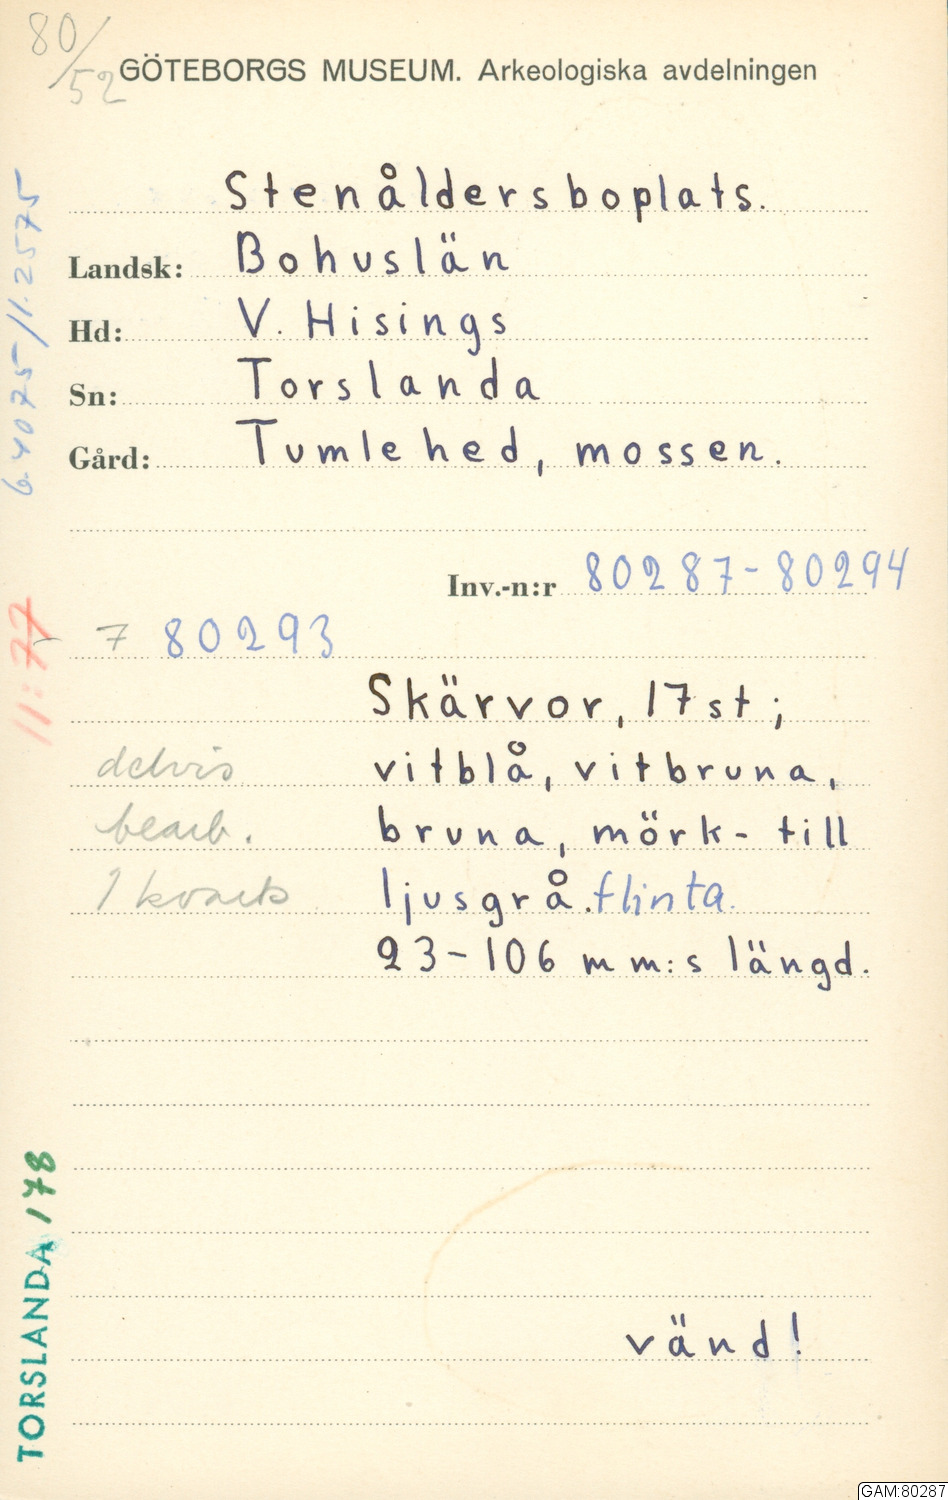 80/52
GÖTEBORGS MUSEUM. Arkeologiska avdelningen
Stenåldersboplats.
Landsk: Bohuslän
Hd: V. Hisings
Sn: Torslanda
Gård: Tumlehed, mossen.
Inv.-n:r 80287-80294
7 80293
Skärvor, 17 st;
delvis vitblå, vitbruna,
bearb. bruna, mörk- till
1 kvarts ljusgrå. flinta.
23-106 mm:s längd.
vänd!
6.4075/1.2575
11:77
TORSLANDA 178
GAM:80287